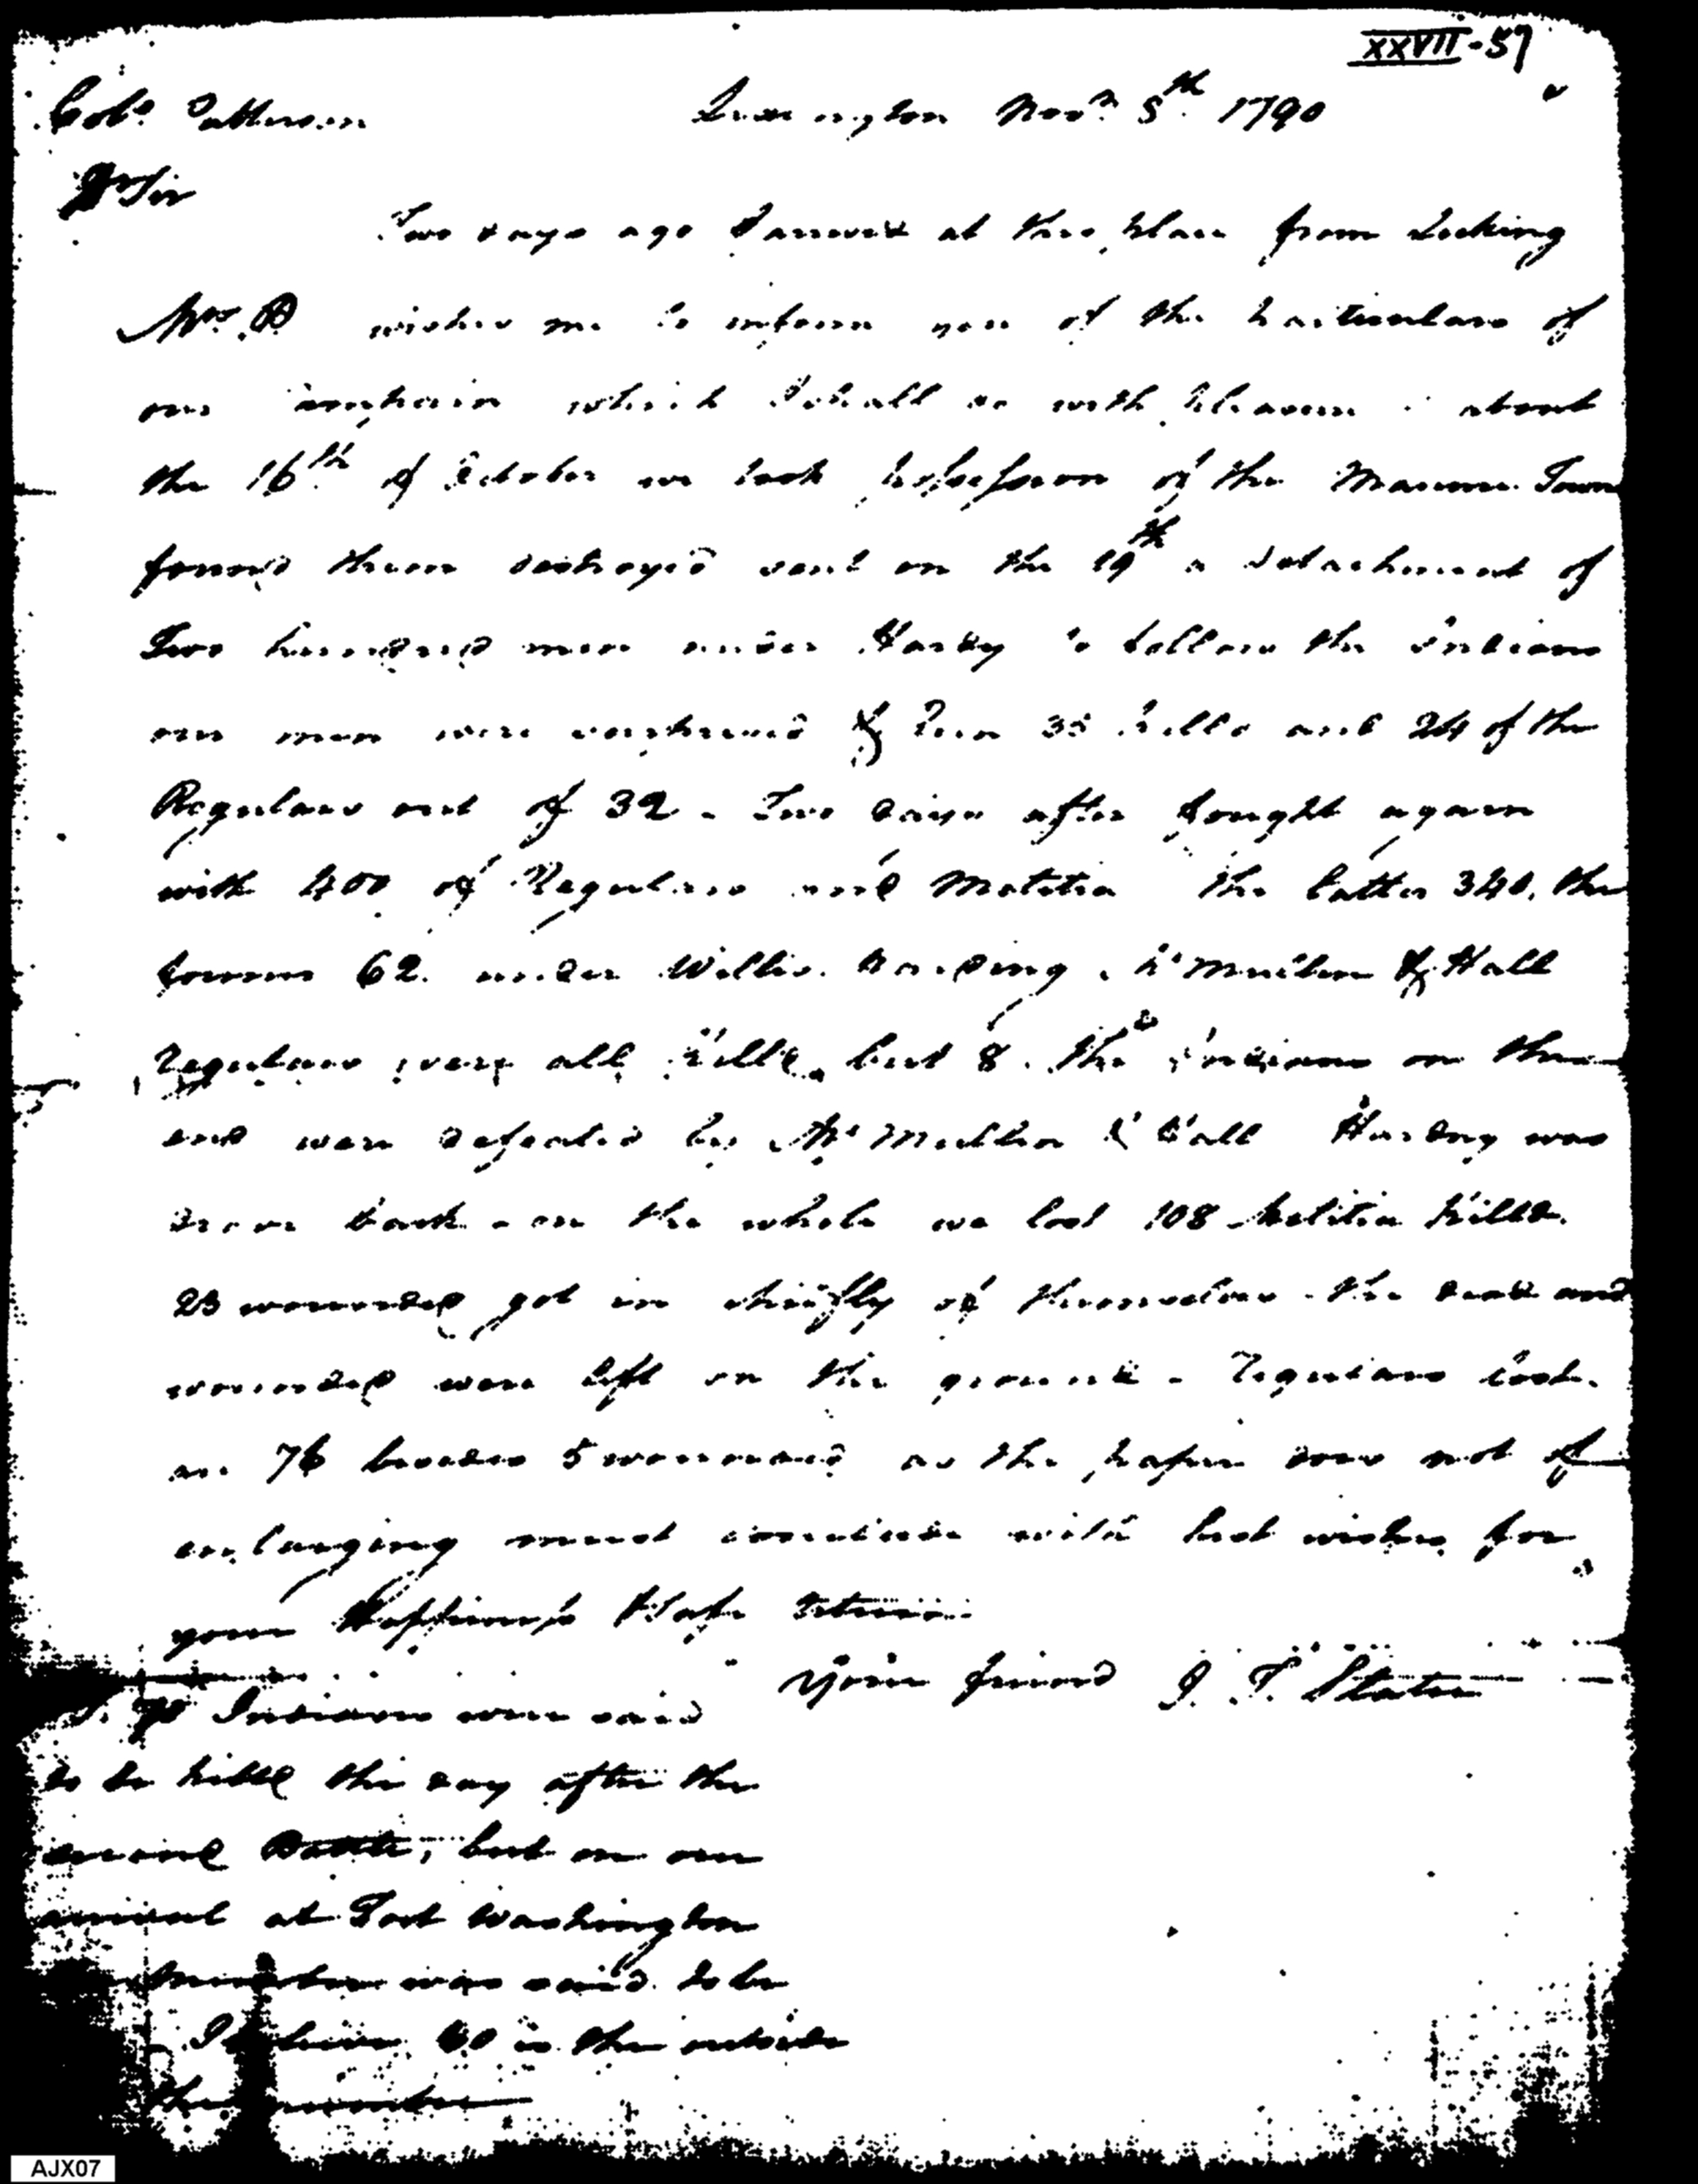 XXVII-57
Colo. Patterson Lexington Novr. 5th 1790
Dr Sir
Two days ago I arrived at this place from Licking
Mrs. P wishes me to inform you of the particulars of
our campain which I shall do with pleasure about
the 16th of October we took possession of the Maume Town
found them destroyed sent on the 19th a detachment of
Two hundred men under Hardy to follow the Indians
our men were surprised & run 35 killd and 24 of the
Regulars out of 32 - Two days after fought again
with 400 of Regulars and Malitia the latter 340, the
former 62. under Willis. Harding, McMullin & Hall
Regulars were all killd but 8. the Indians on the
end were defeated by McMullin & Hall Hardng was
drove back - on the whole we lost 108 Melitia killd.
23 wounded got in chiefly of themselves - the dead and
wounded were left on the ground - Regulars lost.
76 besides 5 wounded as the paper does not of
enlarging must conclude with best wishes for
your Happiness & Safe return
Your friend
Indians were said
to be killd the day after the
second Battle, but on our
arrival at Fort Washington
number was said to be
60 is the outside
the number
AJX07